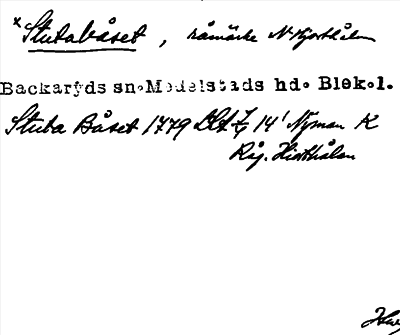 x Stutabåset, råmärke N Hjorthålan
Backaryds sn. Medelstads hd. Blek.l.
Stuta Båset 1779 14' Nyman K
Råg. Hiorthålan